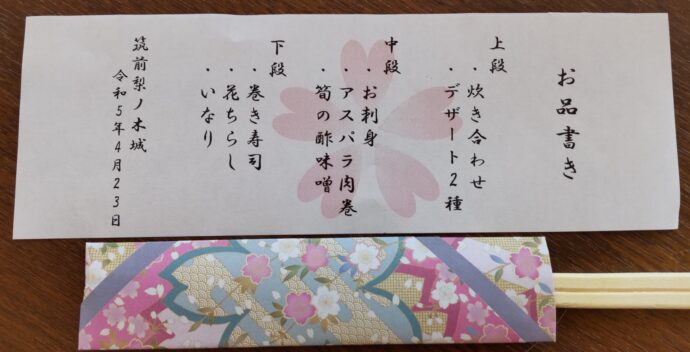 お品書き
上段
・炊き合わせ
・デザート2種
中段
・お刺身
・アスパラ肉巻
・筍の酢味噌
下段
・巻き寿司
・花ちらし
・いなり
筑前梨ノ木城
令和5年4月23日